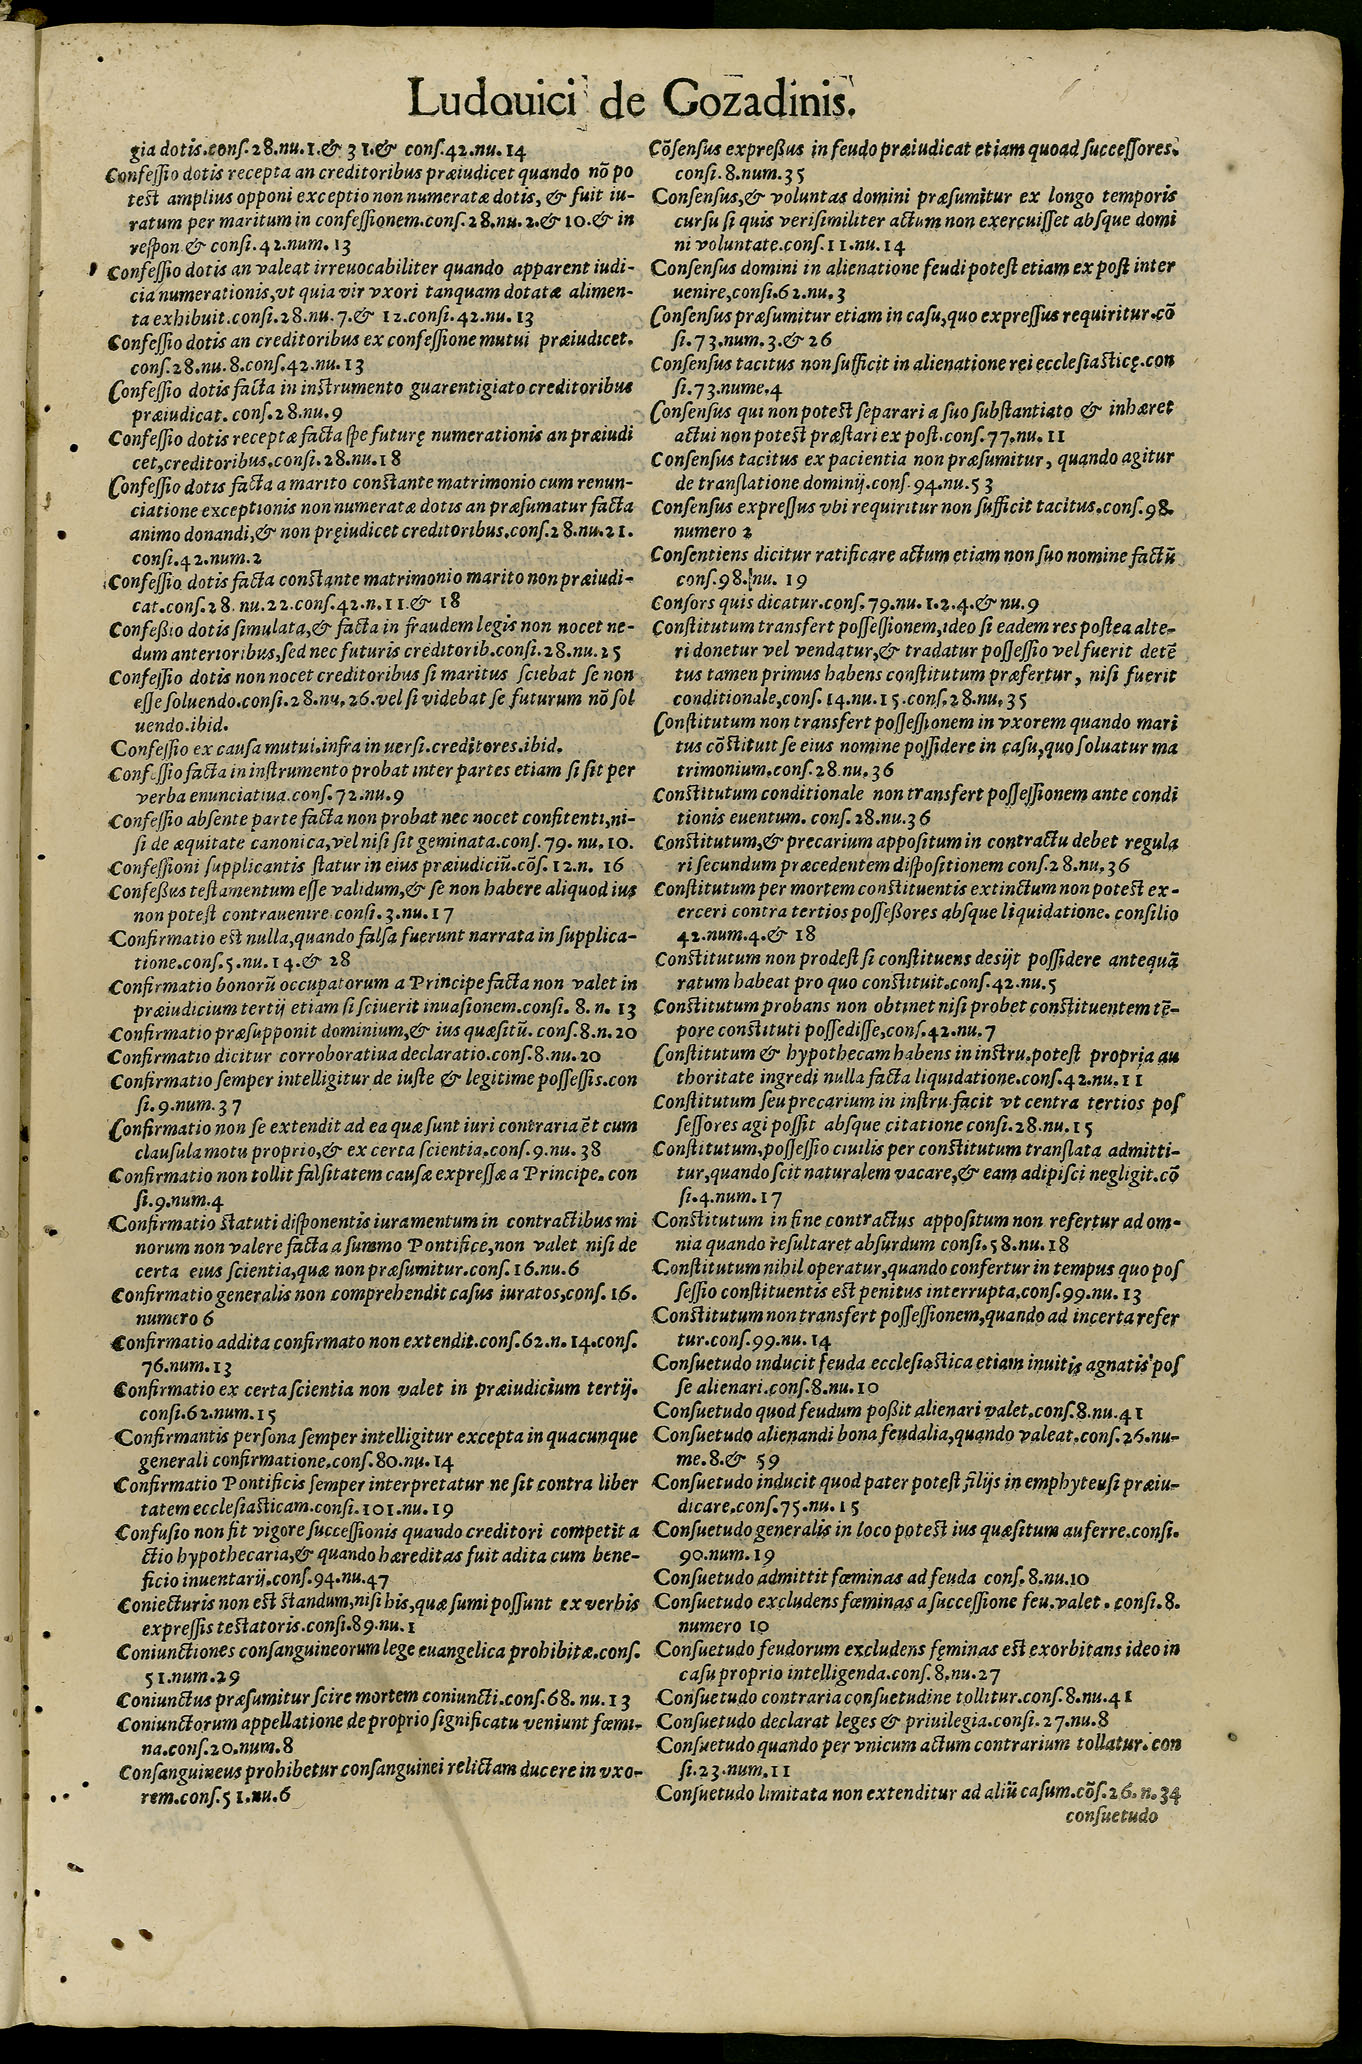 Ludouici de Gozadinis.
gia dotis.conſ.28.nu.1.& 31.& conſ.42.nu.14
Confeſſio dotis recepta an creditoribus præiudicet quando nõ po
teſt amplius opponi exceptio non numeratæ dotis, & fuit iu-
ratum per maritum in confeſſionem.conſ.28.nu.2.& 10.& in
reſpon & conſi.42.num.13
Confeſſio dotis an valeat irreuocabiliter quando apparent iudi-
cia numerationis,vt quia vir vxori tanquam dotatæ alimen-
ta exhibuit.conſi.28.nu.7.& 12.conſi.42.nu.13
Confeſſio dotis an creditoribus ex confeſſione mutui præiudicet.
conſ.28.nu.8.conſ.42.nu.13
Confeſſio dotis facta in inſtrumento guarentigiato creditoribus
præiudicat. conſ.28.nu.9
Confeſſio dotis receptæ facta ſpe futurę numerationis an præiudi
cet,creditoribus.conſi.28.nu.18
Confeſſio dotis facta a marito conſtante matrimonio cum renun-
ciatione exceptionis non numeratæ dotis an præſumatur facta
animo donandi,& non pręiudicet creditoribus.conſ.28.nu.21.
conſi.42.num.2
Confeſſio dotis facta conſtante matrimonio marito non præiudi-
cat.conſ.28.nu.22.conſ.42.n.11.& 18
Confeßio dotis ſimulata,& facta in fraudem legis non nocet ne-
dum anterioribus,ſed nec futuris creditorib.conſi.28.nu.25
Confeſſio dotis non nocet creditoribus ſi maritus ſciebat ſe non
eſſe ſoluendo.conſi.28.nu.26.vel ſi videbat ſe futurum nõ ſol
uendo.ibid.
Confeſſio ex cauſa mutui.infra in uerſi.creditores.ibid.
Confeſſio facta in inſtrumento probat inter partes etiam ſi ſit per
verba enunciatiua.conſ.72.nu.9
Confeſſio abſente parte facta non probat nec nocet confitenti,ni-
ſi de æquitate canonica,vel niſi ſit geminata.conſ.79. nu.10.
Confeſſioni ſupplicantis ſtatur in eius præiudiciũ.cõſ.12.n. 16
Confeßus teſtamentum eſſe validum,& ſe non habere aliquod ius
non poteſt contrauenire conſi.3.nu.17
Confirmatio eſt nulla,quando falſa fuerunt narrata in ſupplica-
tione.conſ.5.nu.14.& 28
Confirmatio bonorũ occupatorum a Principe facta non valet in
præiudicium tertij etiam ſi ſciuerit inuaſionem.conſi. 8. n. 13
Confirmatio præſupponit dominium,& ius quæſitũ. conſ.8.n.20
Confirmatio dicitur corroboratiua declaratio.conſ.8.nu.20
Confirmatio ſemper intelligitur de iuſte & legitime poſſeſſis.con
ſi.9.num.37
Confirmatio non ſe extendit ad ea quæ ſunt iuri contraria ẽt cum
clauſula motu proprio,& ex certa ſcientia.conſ.9.nu.38
Confirmatio non tollit falſitatem cauſæ expreſſæ a Principe. con
ſi.9.num.4
Confirmatio ſtatuti diſponentis iuramentum in contractibus mi
norum non valere facta a ſummo Pontifice,non valet niſi de
certa eius ſcientia,quæ non præſumitur.conſ.16.nu.6
Confirmatio generalis non comprehendit caſus iuratos,conſ.16.
numero 6
Confirmatio addita confirmato non extendit.conſ.62.n.14.conſ.
76.num.13
Confirmatio ex certa ſcientia non valet in præiudicium tertij.
conſi.62.num.15
Confirmantis perſona ſemper intelligitur excepta in quacunque
generali confirmatione.conſ.80.nu.14
Confirmatio Pontificis ſemper interpretatur ne ſit contra liber
tatem eccleſiaſticam.conſi.101.nu.19
Confuſio non fit vigore ſucceſſionis quando creditori competit a
ctio hypothecaria,& quando hæreditas fuit adita cum bene-
ficio inuentarij.conſ.94.nu.47
Coniecturis non eſt ſtandum,niſi his,quæ ſumi poſſunt ex verbis
expreſſis teſtatoris.conſi.89.nu.1
Coniunctiones conſanguineorum lege euangelica prohibitæ.conſ.
51.num.29
Coniunctus præſumitur ſcire mortem coniuncti.conſ.68. nu.13
Coniunctorum appellatione de proprio ſignificatu veniunt fœmi-
na.conſ.20.num.8
Conſanguineus prohibetur conſanguinei relictam ducere in vxo-
rem.conſ.51.nu.6
Cõſenſus expreßus in feudo præiudicat etiam quoad ſucceſſores.
conſi.8.num.35
Conſenſus,& voluntas domini præſumitur ex longo temporis
curſu ſi quis veriſimiliter actum non exercuiſſet abſque domi
ni voluntate.conſ.11.nu.14
Conſenſus domini in alienatione feudi poteſt etiam ex poſt inter
uenire,conſi.62.nu.3
Conſenſus præſumitur etiam in caſu,quo expreſſus requiritur.cõ
ſi.73.num.3.& 26
Conſenſus tacitus non ſufficit in alienatione rei eccleſiaſticę.con
ſi.73.nume.4
Conſenſus qui non poteſt ſeparari a ſuo ſubſtantiato & inhæret
actui non poteſt præſtari ex poſt.conſ.77.nu.11
Conſenſus tacitus ex pacientia non præſumitur, quando agitur
de tranſlatione dominij.conſ.94.nu.53
Conſenſus expreſſus vbi requiritur non ſufficit tacitus.conſ.98.
numero 2
Conſentiens dicitur ratificare actum etiam non ſuo nomine factũ
conſ.98. nu. 19
Conſors quis dicatur.conſ.79.nu.1.2.4.& nu.9
Conſtitutum transfert poſſeſſionem,ideo ſi eadem res poſtea alte-
ri donetur vel vendatur,& tradatur poſſeſſio vel fuerit detẽ
tus tamen primus habens conſtitutum præfertur, niſi fuerit
conditionale,conſ.14.nu.15.conſ.28.nu.35
Conſtitutum non transfert poſſeſſionem in vxorem quando mari
tus cõſtituit ſe eius nomine poſſidere in caſu,quo ſoluatur ma
trimonium.conſ.28.nu.36
Conſtitutum conditionale non transfert poſſeſſionem ante condi
tionis euentum. conſ.28.nu.36
Conſtitutum,& precarium appoſitum in contractu debet regula
ri ſecundum præcedentem diſpoſitionem conſ.28.nu.36
Conſtitutum per mortem conſtituentis extinctum non poteſt ex-
erceri contra tertios poſſeßores abſque liquidatione. conſilio
42.num.4.& 18
Conſtitutum non prodeſt ſi conſtituens desijt poſſidere antequã
ratum habeat pro quo conſtituit.conſ.42.nu.5
Conſtitutum probans non obtinet niſi probet conſtituentem tẽ-
pore conſtituti poſſediſſe,conſ.42.nu.7
Conſtitutum & hypothecam habens in inſtru.poteſt propria au
thoritate ingredi nulla facta liquidatione.conſ.42.nu.11
Conſtitutum ſeu precarium in inſtru.facit vt centra tertios poſ
ſeſſores agi poſſit abſque citatione conſi.28.nu.15
Conſtitutum,poſſeſſio ciuilis per conſtitutum tranſlata admitti-
tur,quando ſcit naturalem vacare,& eam adipiſci negligit.cõ
ſi.4.num.17
Conſtitutum in fine contractus appoſitum non refertur ad om-
nia quando reſultaret abſurdum conſi.58.nu.18
Conſtitutum nihil operatur,quando confertur in tempus quo poſ
ſeſſio conſtituentis eſt penitus interrupta.conſ.99.nu.13
Conſtitutum non transfert poſſeſſionem,quando ad incerta refer
tur.conſ.99.nu.14
Conſuetudo inducit feuda eccleſiaſtica etiam inuitis agnatis poſ
ſe alienari.conſ.8.nu.10
Conſuetudo quod feudum poßit alienari valet.conſ.8.nu.41
Conſuetudo alienandi bona feudalia,quando valeat.conſ.26.nu-
me.8.& 59
Conſuetudo inducit quod pater poteſt filijs in emphyteuſi præiu-
dicare.conſ.75.nu.15
Conſuetudo generalis in loco poteſt ius quæſitum auferre.conſi.
90.num.19
Conſuetudo admittit fœminas ad feuda conſ.8.nu.10
Conſuetudo excludens fœminas a ſucceſſione feu.valet. conſi.8.
numero 10
Conſuetudo feudorum excludens fęminas eſt exorbitans ideo in
caſu proprio intelligenda.conſ.8.nu.27
Conſuetudo contraria conſuetudine tollitur.conſ.8.nu.41
Conſuetudo declarat leges & priuilegia.conſi.27.nu.8
Conſuetudo quando per vnicum actum contrarium tollatur.con
ſi.23.num.11
Conſuetudo limitata non extenditur ad aliũ caſum.cõſ.26.n.34
conſuetudo